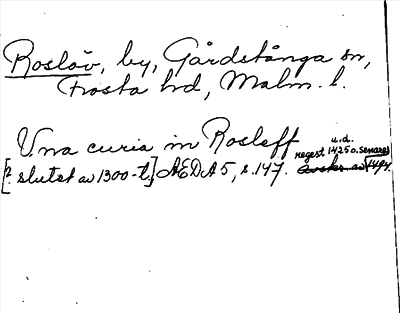 Roslöv, by, Gårdstånga sn,
Frosta hd, Malm. l.
Una curia in Rosleff u.d.
[? slutet av 1300-t.] ÆDA 5, s. 147. regest 1425 o. senares
avskr. av 1494.